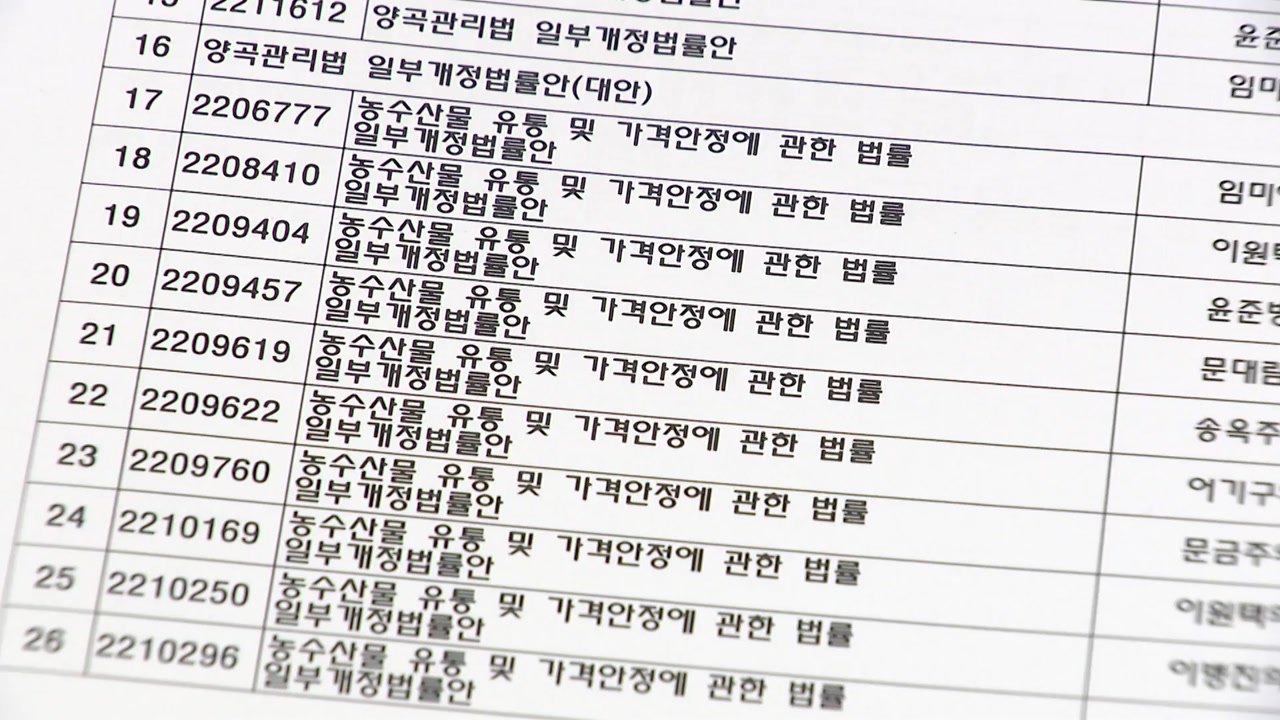 윤준
15 2211612 양곡관리법 일부개정법률안 임미
16 양곡관리법 일부개정법률안(대안)
17 2206777 농수산물 유통 및 가격안정에 관한 법률 임미
일부개정법률안
18 2208410 농수산물 유통 및 가격안정에 관한 법률 이원
일부개정법률안
19 2209404 농수산물 유통 및 가격안정에 관한 법률 윤준병
일부개정법률안
20 2209457 농수산물 유통 및 가격안정에 관한 법률 문대림
일부개정법률안
21 2209619 농수산물 유통 및 가격안정에 관한 법률 송옥주
일부개정법률안
22 2209622 농수산물 유통 및 가격안정에 관한 법률 어기구
일부개정법률안
23 2209760 농수산물 유통 및 가격안정에 관한 법률 문금주
일부개정법률안
24 2210169 농수산물 유통 및 가격안정에 관한 법률 이원택
일부개정법률안
25 2210250 농수산물 유통 및 가격안정에 관한 법률 이병진의
일부개정법률안
26 2210296 농수산물 유통 및 가격안정에 관한 법률
일부개정법률안